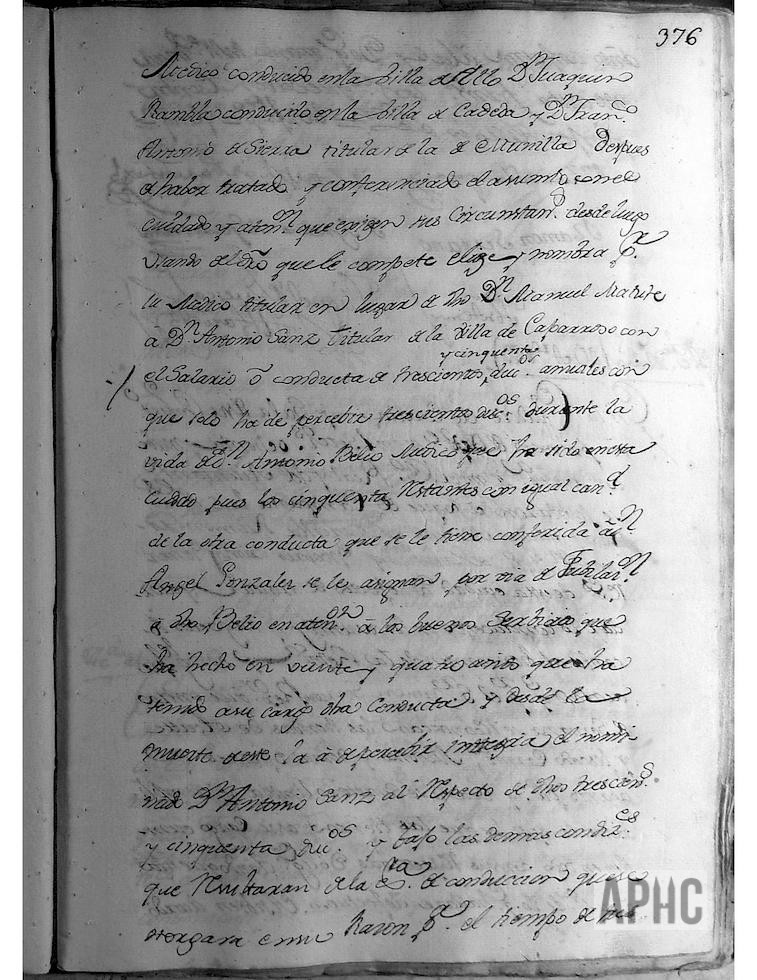 376
Medico conducido en la villa de Allo Dn Juaquin
Rambla conducido en la villa de Cadeda y Dn Franco
Antonio de Sierra titular de la de Munilla Despues
de haber tratado y conferenciado el asumpto con el
cuidado y atenon que exigen sus Circunstans desde luego
usando del dro que le compete elige y nombra pr
su Medico titular en lugar de dho Dn Manuel Matute
a Dn Antonio Sanz Titular de la villa de Caparroso con
y cinquenta
el Salario ó conducta de trescientos ducos anuales con
que solo ha de percebir trescientos ducos durante la
vida de Dn Antonio Belio Medico que ha sido en esta
Ciudad pues los cinquenta restantes con igual cand
de la otra conducta que se le tiene conferida a Dn
Angel Gonzalez se les asignan por via de Jubilaon
a dho Belio en atenon a los buenos serbicios que
ha hecho en veinte y quatro años que ha
tenido a su cargo dha Conducta y desde la
muerte de este ha de percebir integra el nomi
nado Dn Antonio Sanz al respecto de dhos trescients
y cinquenta ducos y bajo las demas condizes
que resultaran de la esra de conduccion que se
otorgara en su razon pr el tiempo de tres
APHC